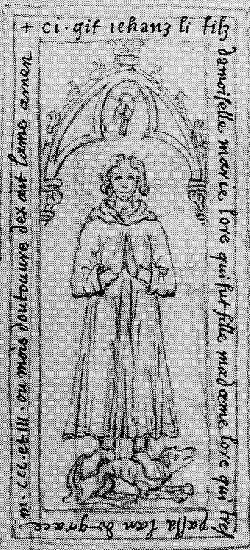 + ci · git iehanz li filz
damoiselle marie lore qui fut fille madame lore qui tres
passa lan de grace
m · ccc · et III · ou mois doctouvre dex ait lame amen